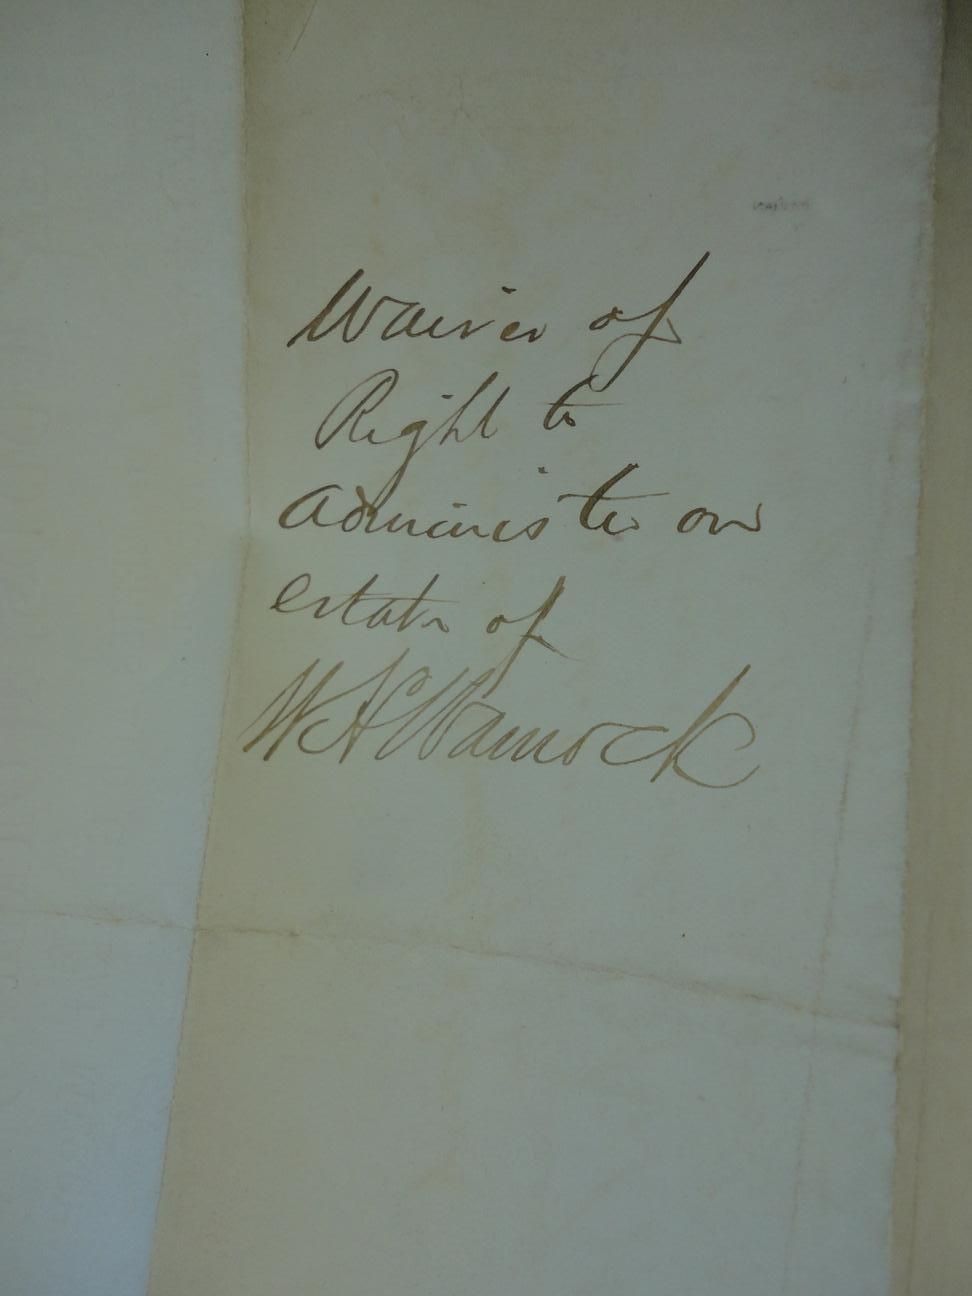 Waiver of
Right to
Administer on
estate of
W H Warnock